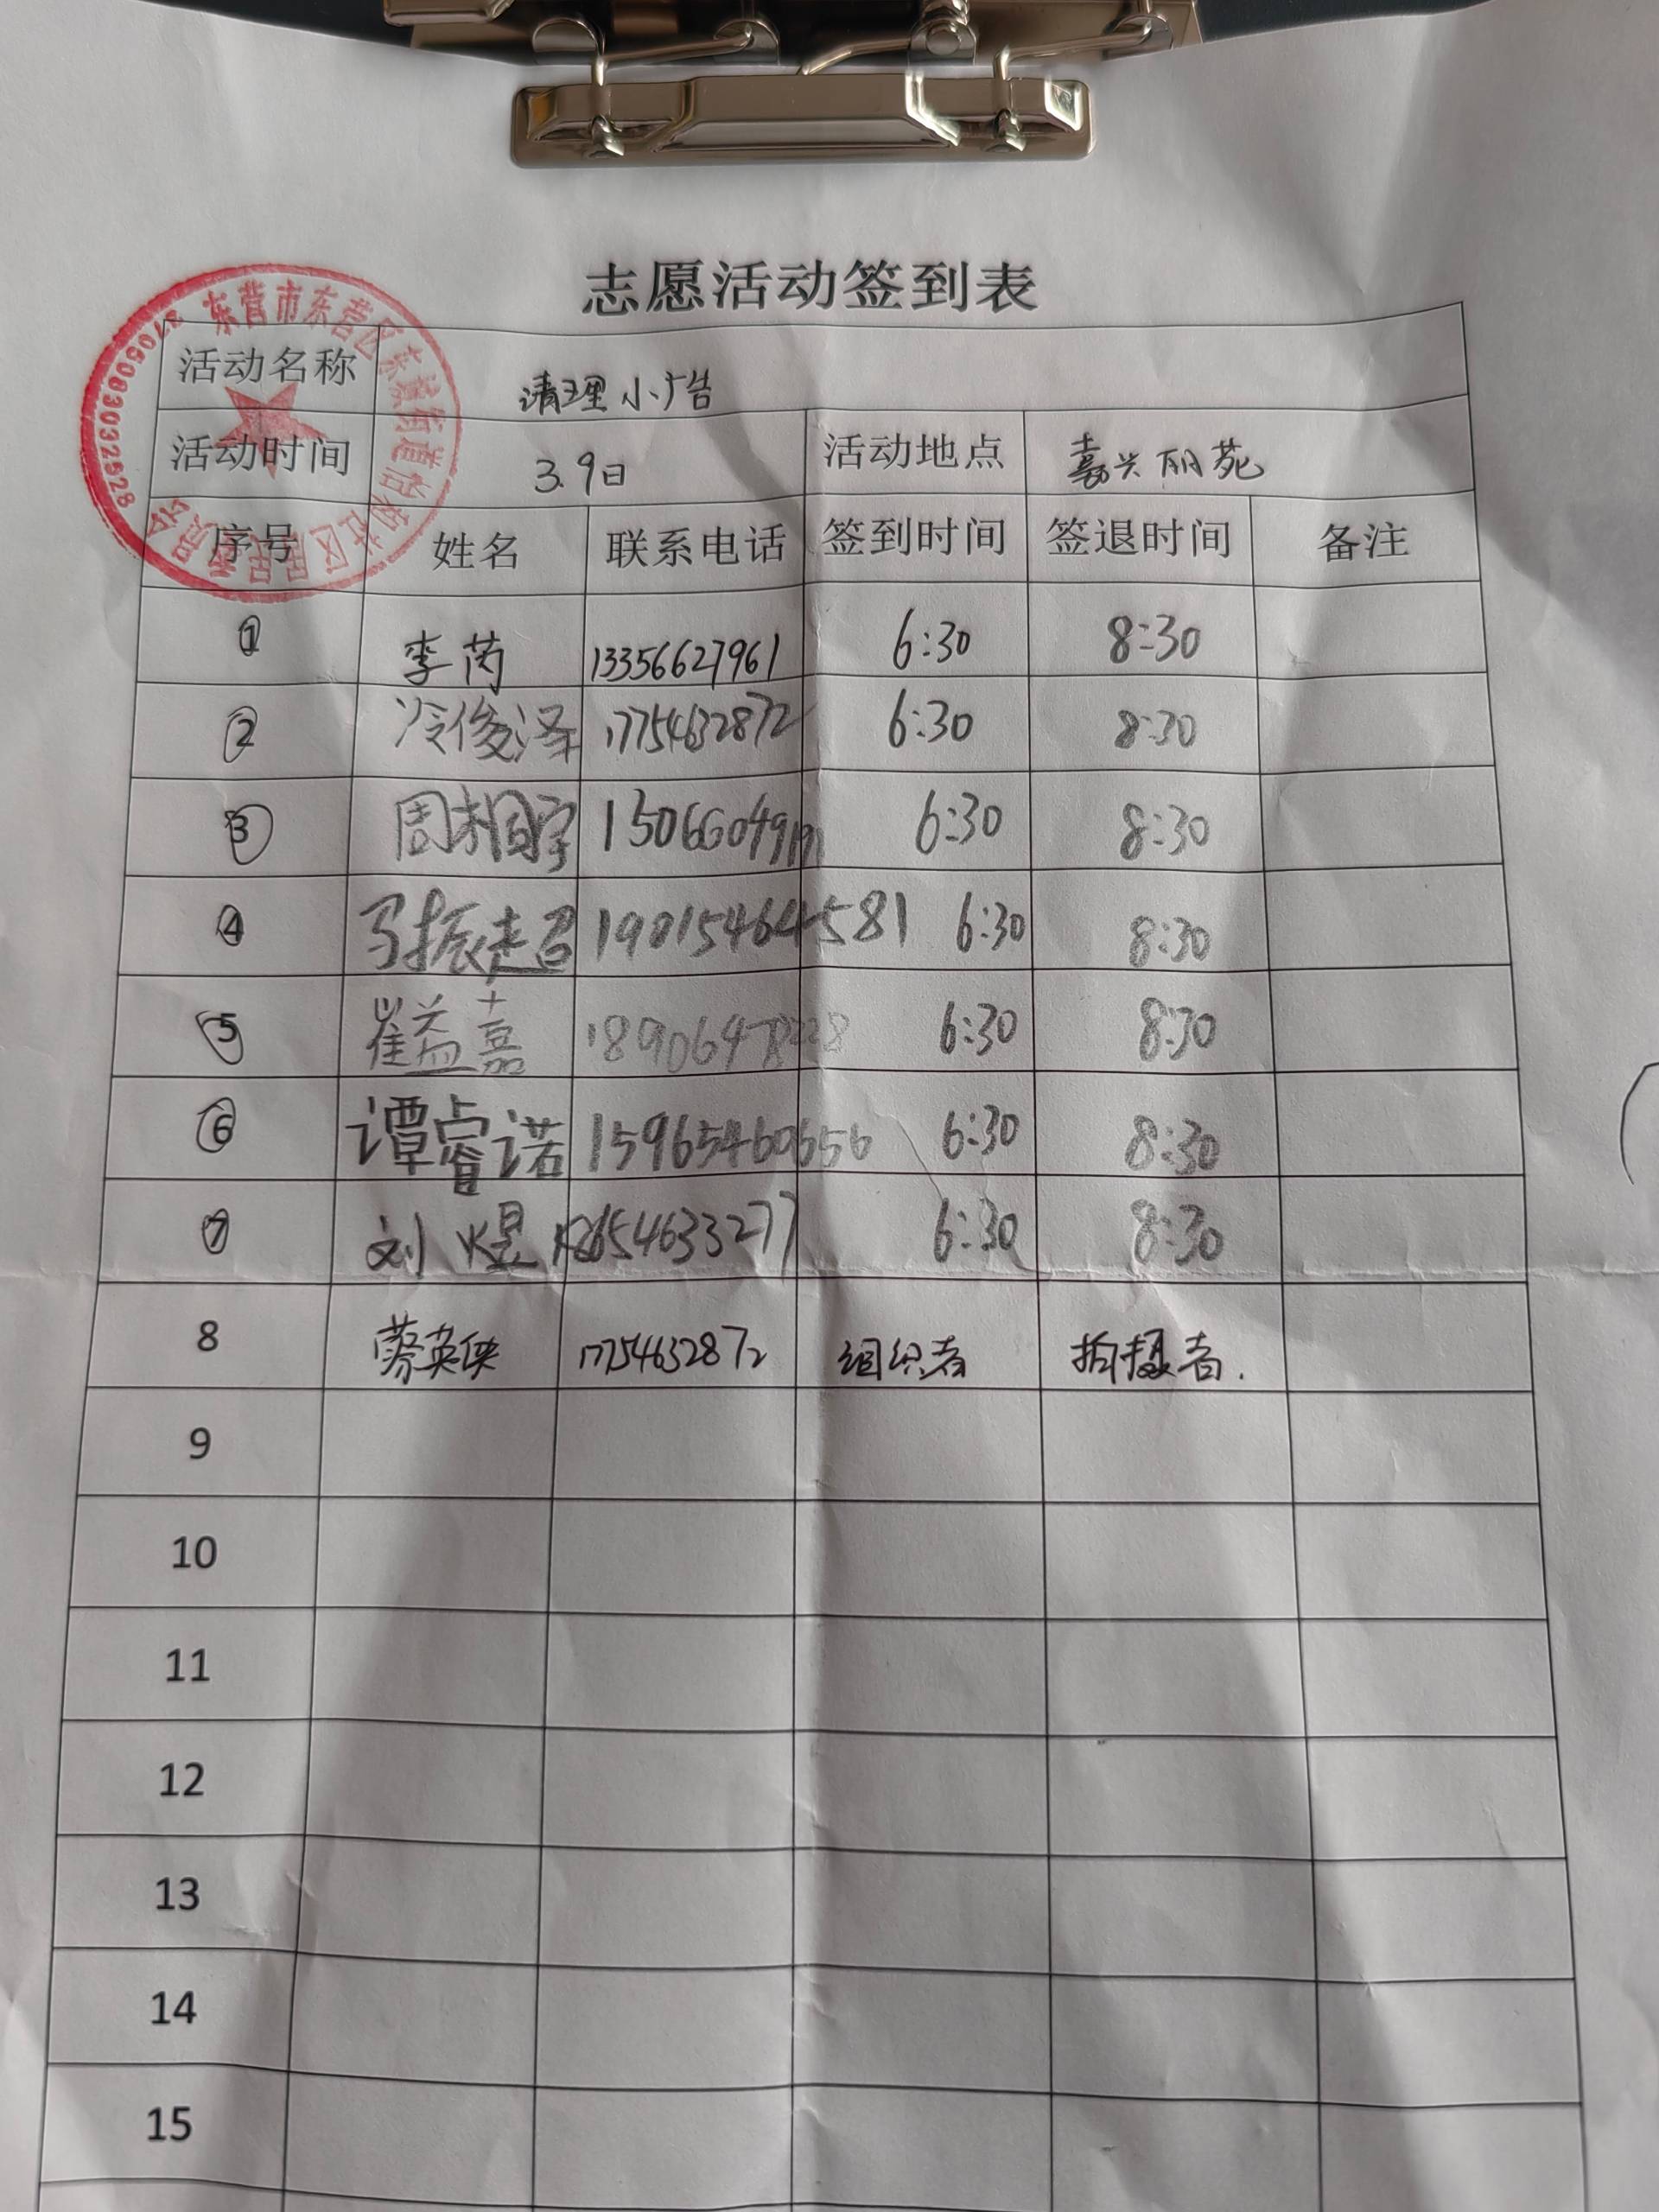 志愿活动签到表
活动名称 清理小广告
活动时间 3.9日 活动地点 嘉兴丽苑
序号 姓名 联系电话 签到时间 签退时间 备注
① 李芮 13356627961 6:30 8:30
② 冷俊泽 17754632872 6:30 8:30
③ 周 宇 6:30 8:30
④ 马振超 19015464581 6:30 8:30
⑤ 崔益嘉 18906478228 6:30 8:30
⑥ 谭睿诺 15965460656 6:30 8:30
⑦ 刘煜 6:30 8:30
8 蔡英侠 17754632872 组织者 拍摄者.
9
10
11
12
13
14
15
东营市东营区
3705060302528